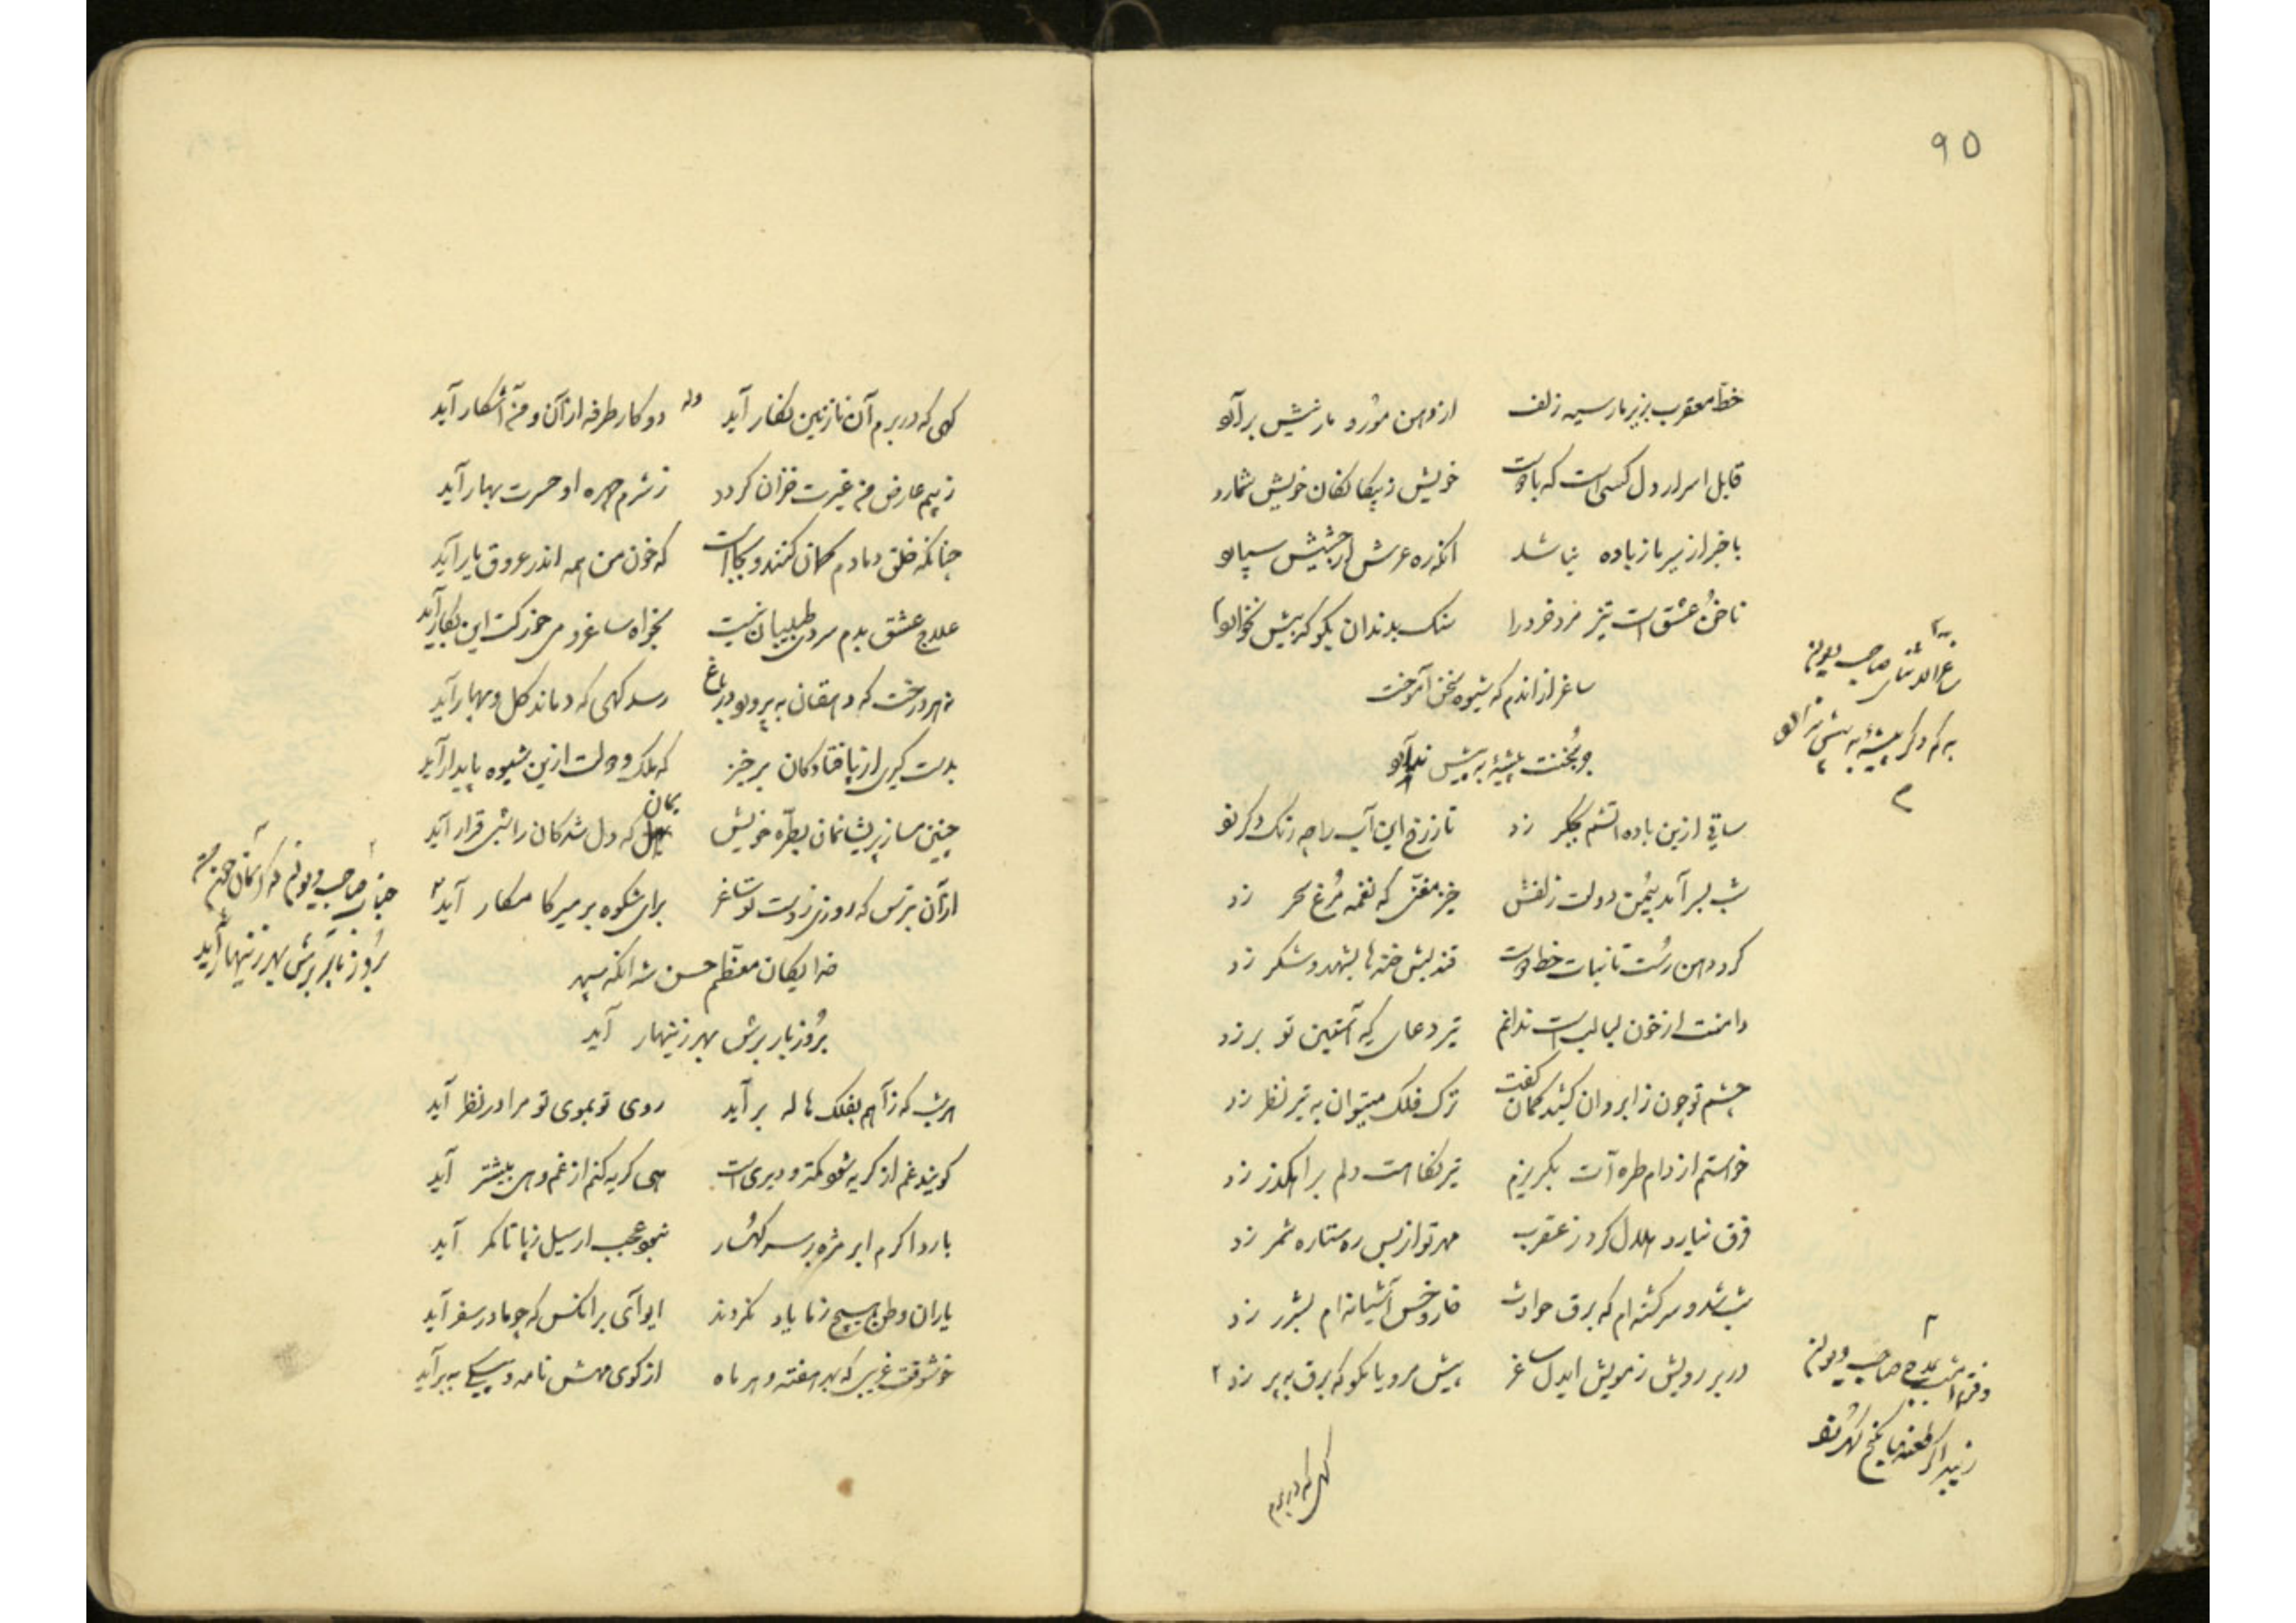 ۹۵
خط معقرب بزیر مار سیه زلف از دهن مور و مار نیش برآرد
قابل اسرار دل کسی است که با دوست خویش ز بیگانگان خویش شمارد
باخبر از سیر ما زیاده نباشد آنکه ره عرش از حشیش سپارد
ناخن عشق است تیز مرد خرد را سنگ بدندان بگو که بیش نخارد
ساغر از اندم که شیوه سخن آموخت
جز سخنت پیشهٔ به پیش ندارد
ساقی ازین باده آتشم بجگر زد تا ز رخ این آب را چه رنگ دگر زد
شب بسر آمد بیُمن دولت زلفش خیز مغنی که نغمه مُرغ سحر زد
کرد دهن رُست تا نبات خط دوست قند لبش خنده‌ها بشهد و شکر زد
دامنت از خون لبالب است ندانم تیر دعای که آستین تو بر زد
چشم تو چون ز ابروان کشید کمان گفت ترک فلک میتوان به تیر نظر زد
خواستم از دام طره‌آت بگریزم تیر نگاهت دلم براهگذر زد
فرق نیارد هلال کرد ز عقرب مهر تو از بس ره ستاره شمر زد
شب شد و سرگشته‌ام که برق حوادث خار و خس آشیانه‌ام بشرر زد
در بر رویش ز مویش ایدل ساغر پیش مرو یا بگو که برق به پر زد ۲
ساغر صاحب دیوان
به که دگر پیشهٔ به پیش ندارد
بمدح صاحب دیوان
زیبد اگر طعنه‌ها بگنج گهر زد
گهی که در بزم
گهی که در بزم آن نازنین نگار آید وله دو کار طرفه از آن و من آشکار آید
ز بیم عارض من غیرت خزان گردد ز شرم چهره او حسرت بهار آید
چنانکه خلق دمادم گمان کنند و بجا است که خون من همه اندر عروق یار آید
علاج عشق بدم سردی طبیبان نیست بخواه ساغر و می خور که این بکار آید
نه هر درخت که دهقان به پرورد در باغ رسد گهی که دماند گل و ببار آید
بدست گیری از پا فتادگان برخیز که ملک و دولت ازین شیوه پایدار آید
چنین مساز پریشانمان بطره خویش بمان که دل شدگان را شبی قرار آید
از آن بترس که روزی ز دست تو ساغر برای شکوه بر میر کامکار آید ۲
خدایگان معظم حسن شه آنکه سپهر
بُروز بار برش بهر زینهار آید
جناب صاحب دیوان که آسمان
بُروز بار برش بهر زینهار آید
هر شب که ز آهم بفلک هاله بر آید روی تو بموی تو مرا در نظر آید
گویند غم از گریه شود کمتر و دیری است هی گریه کنم از غم و هی بیشتر آید
بارد اگرم ابر مژه بر سر کهسار نبود عجب ار سیل ز پا تا کمر آید
یاران وطن هیچ ز ما یاد نکردند ایوای بر آنکس که چو ما در سفر آید
خوشوقت غریبی که بهر هفته و هر ماه از کوی مهش نامه و پیکی به بر آید